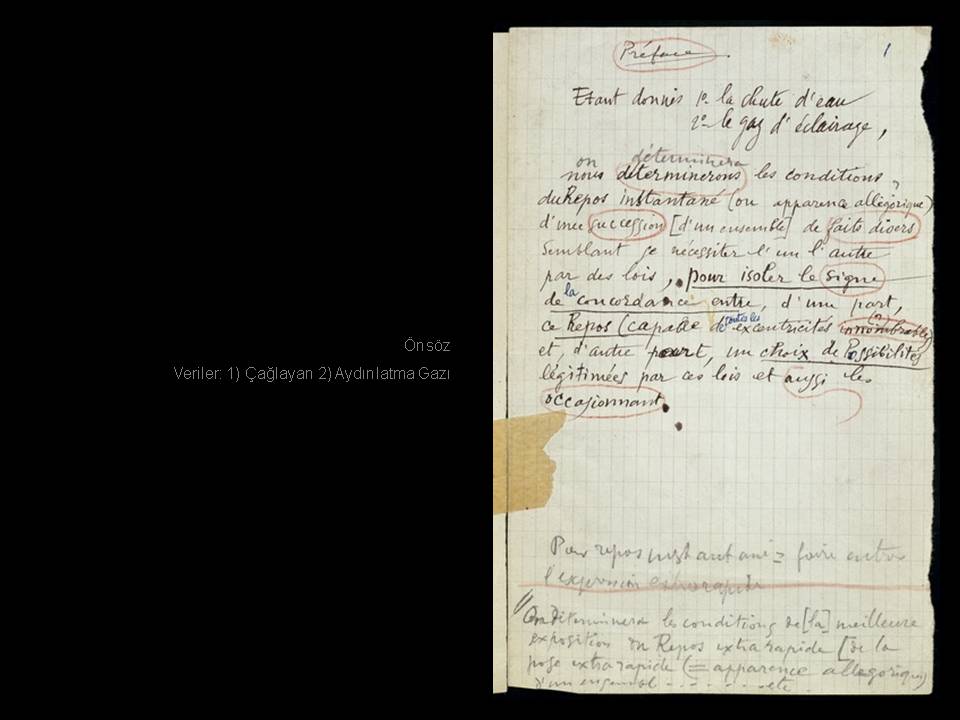 Önsöz
Veriler: 1) Çağlayan 2) Aydınlatma Gazı
Préface
1
Etant donnés 1º- la chute d'eau
2º- le gaz d'éclairage,
on déterminera
nous déterminerons les conditions
du Repos instantané (ou apparence allégorique)
d'une succession [d'un ensemble] de faits divers
semblant se nécessiter l'un l'autre
par des lois, pour isoler le signe
de la concordance entre, d'une part,
ce Repos (capable de toutes les excentricités innombrables (?))
et, d'autre part, un choix de Possibilités
légitimées par ces lois et aussi les
occasionnant.
Pour repos instantané = faire entrer
l'expression extrarapide
On Déterminera les conditions de [la] meilleure
exposition du Repos extra rapide [de la
pose extra rapide (= apparence allégorique)
d'un ensembl - - - - - - - etc.